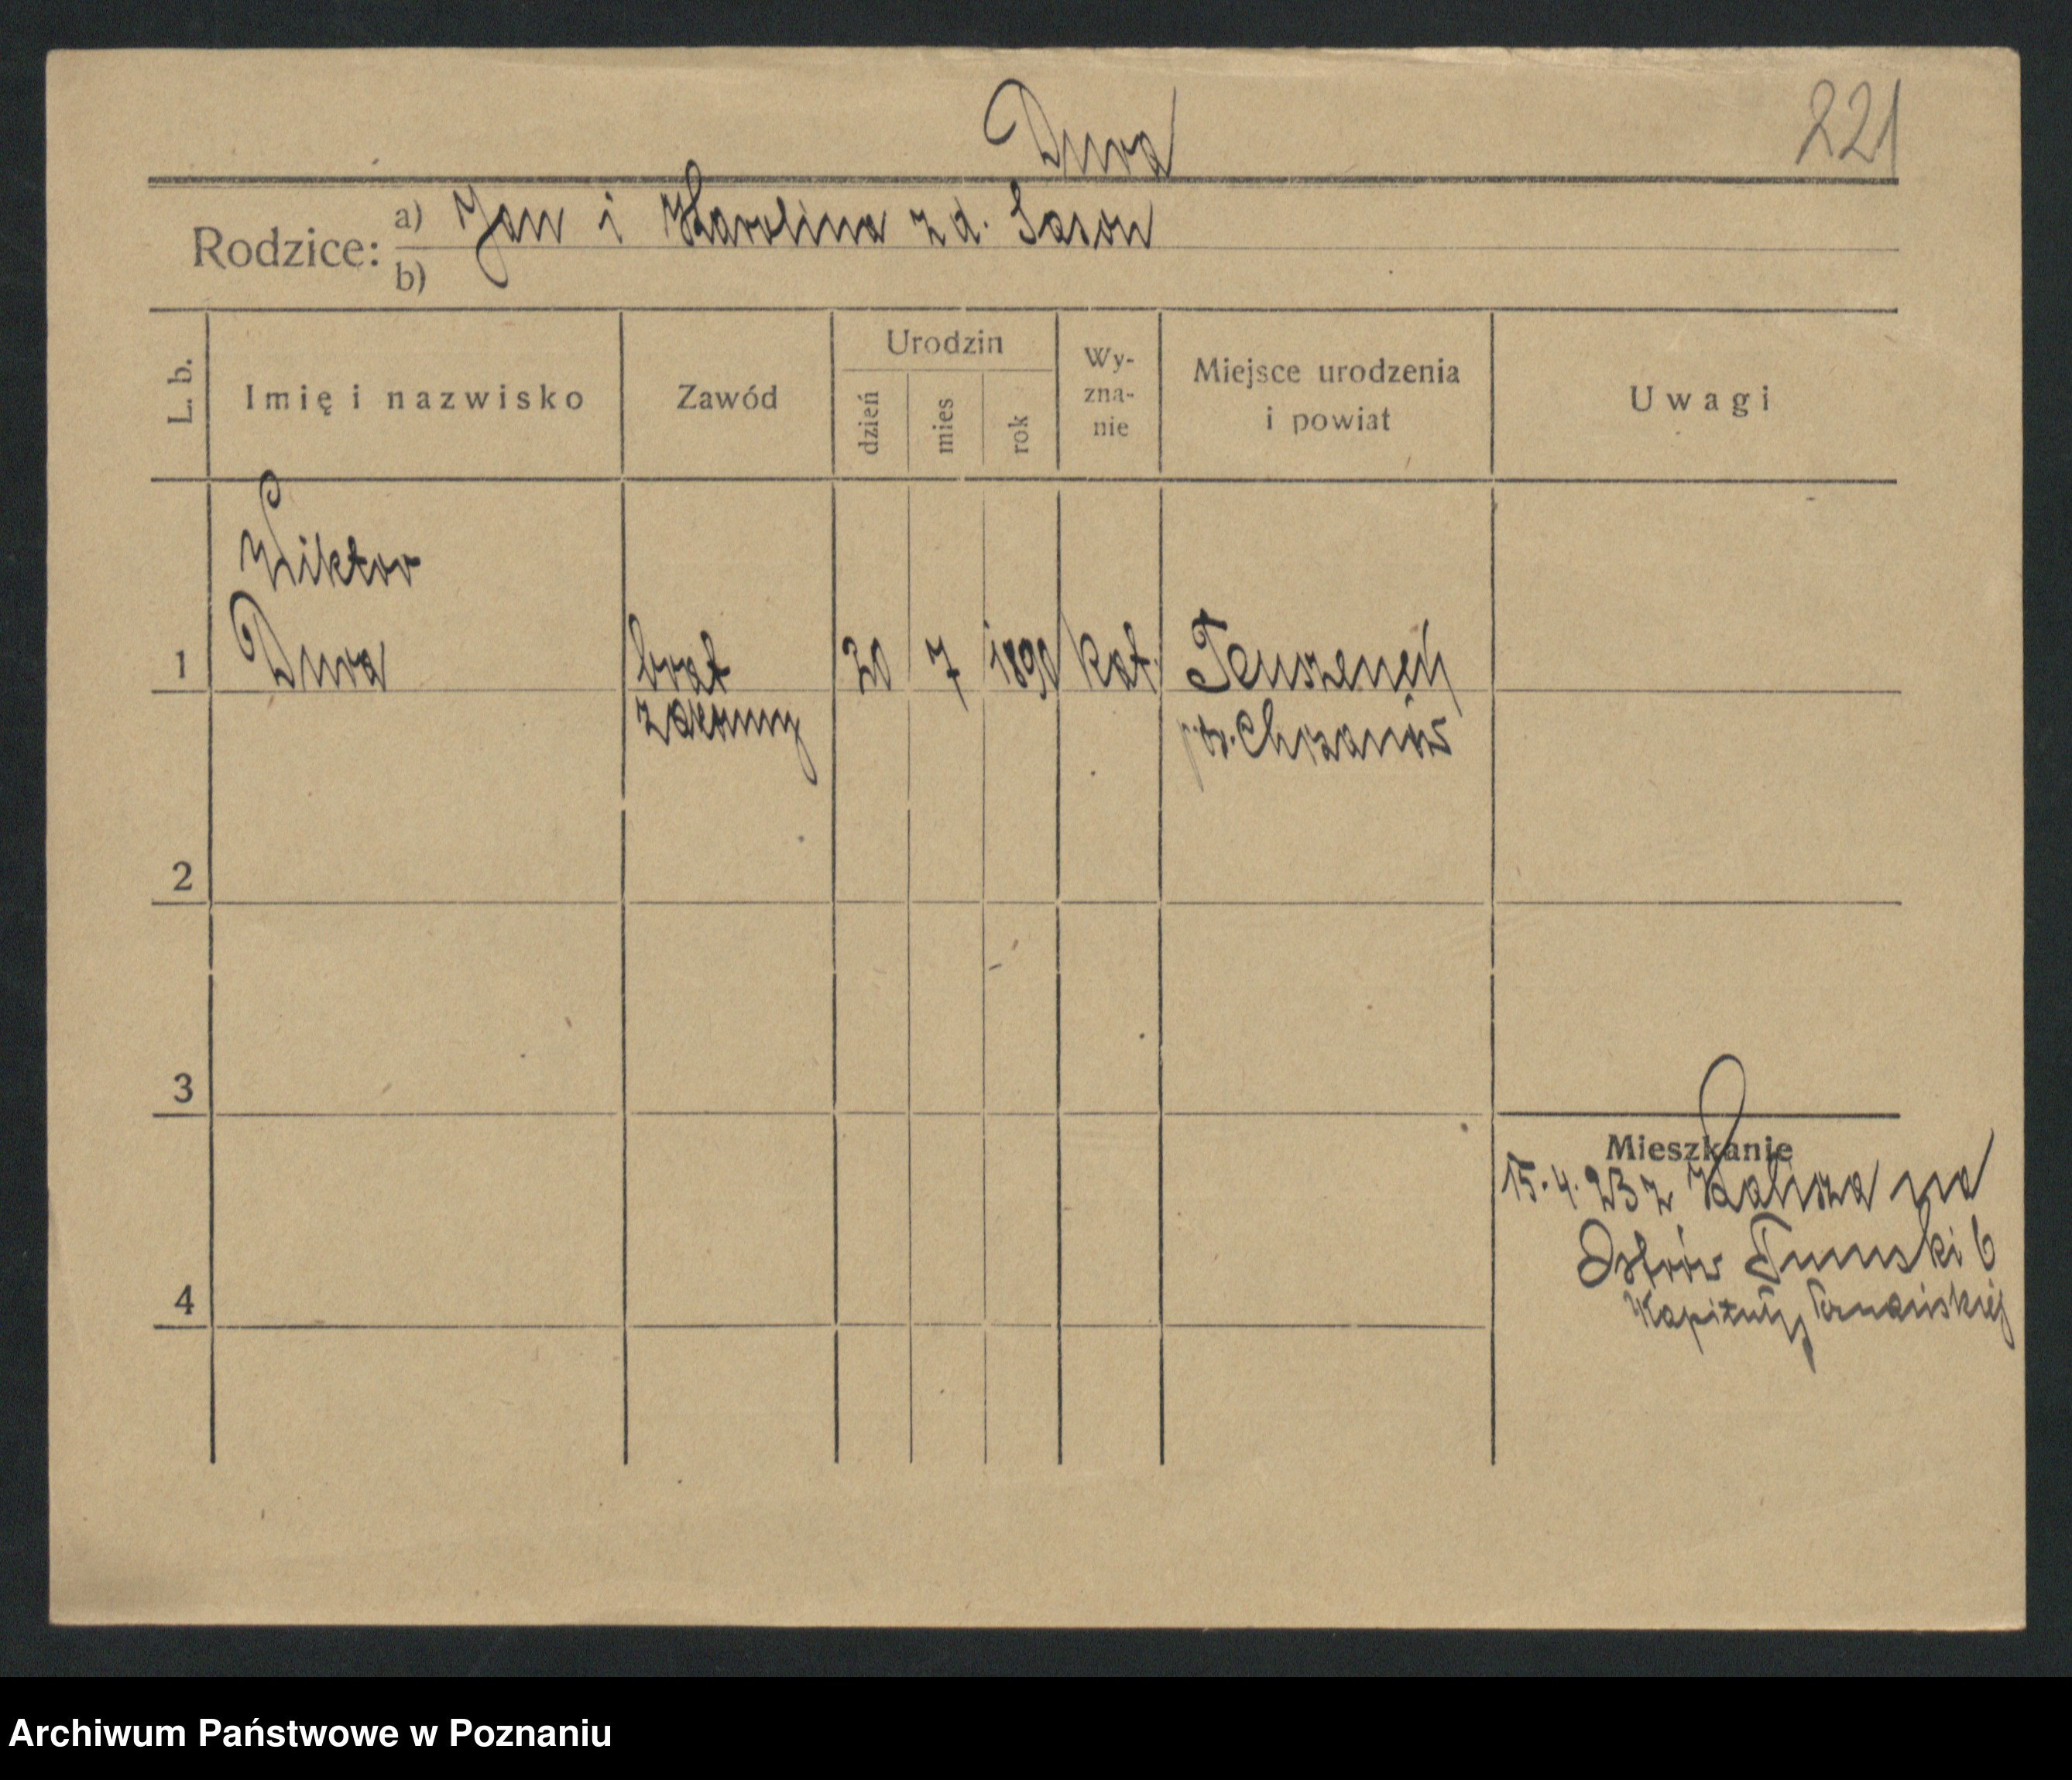 Dura
221
Rodzice: a) Jan i Karolina z d. Sason
b)
L. b.
Imię i nazwisko
Zawód
Urodzin
dzień
mies
rok
Wy-
zna-
nie
Miejsce urodzenia
i powiat
Uwagi
Wiktor
1 Dura brat 20 7 1890 kat.
zakonny
Chrzanów
2
3
4
Mieszkanie
15.4.23 z Kalisza na
Ostrów Tumski 6
Kapituły
Archiwum Państwowe w Poznaniu